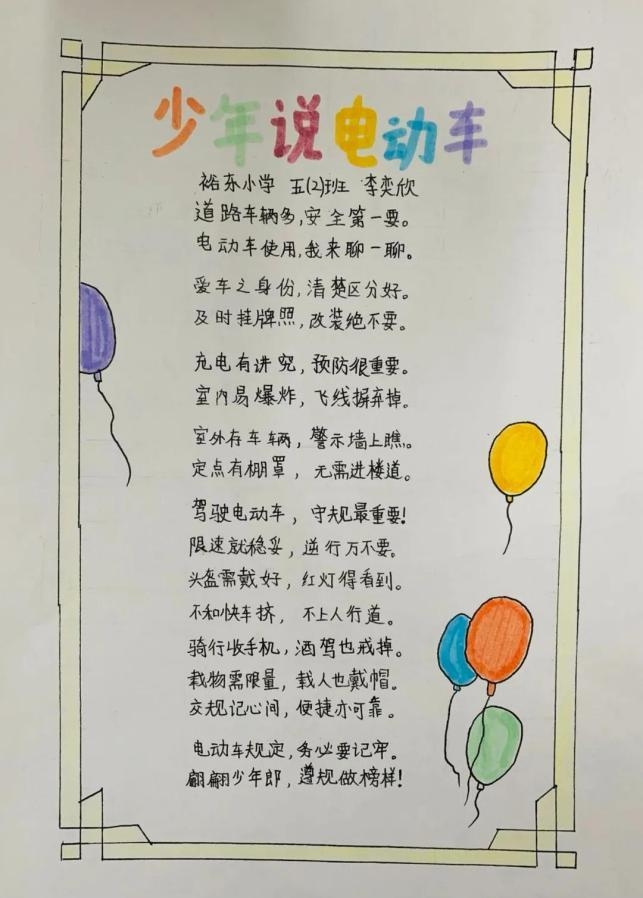 少年说电动车
裕东小学 五(2)班 李奕欣
道路车辆多,安全第一要。
电动车使用,我来聊一聊。
爱车之身份,清楚区分好。
及时挂牌照,改装绝不要。
充电有讲究,预防很重要。
室内易爆炸,飞线摒弃掉。
室外存车辆,警示墙上瞧。
定点有棚罩,无需进楼道。
驾驶电动车,守规最重要!
限速就稳妥,逆行万不要。
头盔需戴好,红灯得看到。
不和快车挤,不上人行道。
骑行收手机,酒驾也戒掉。
载物需限量,载人也戴帽。
交规记心间,便捷亦可靠。
电动车规定,务必要记牢。
翩翩少年郎,遵规做榜样!